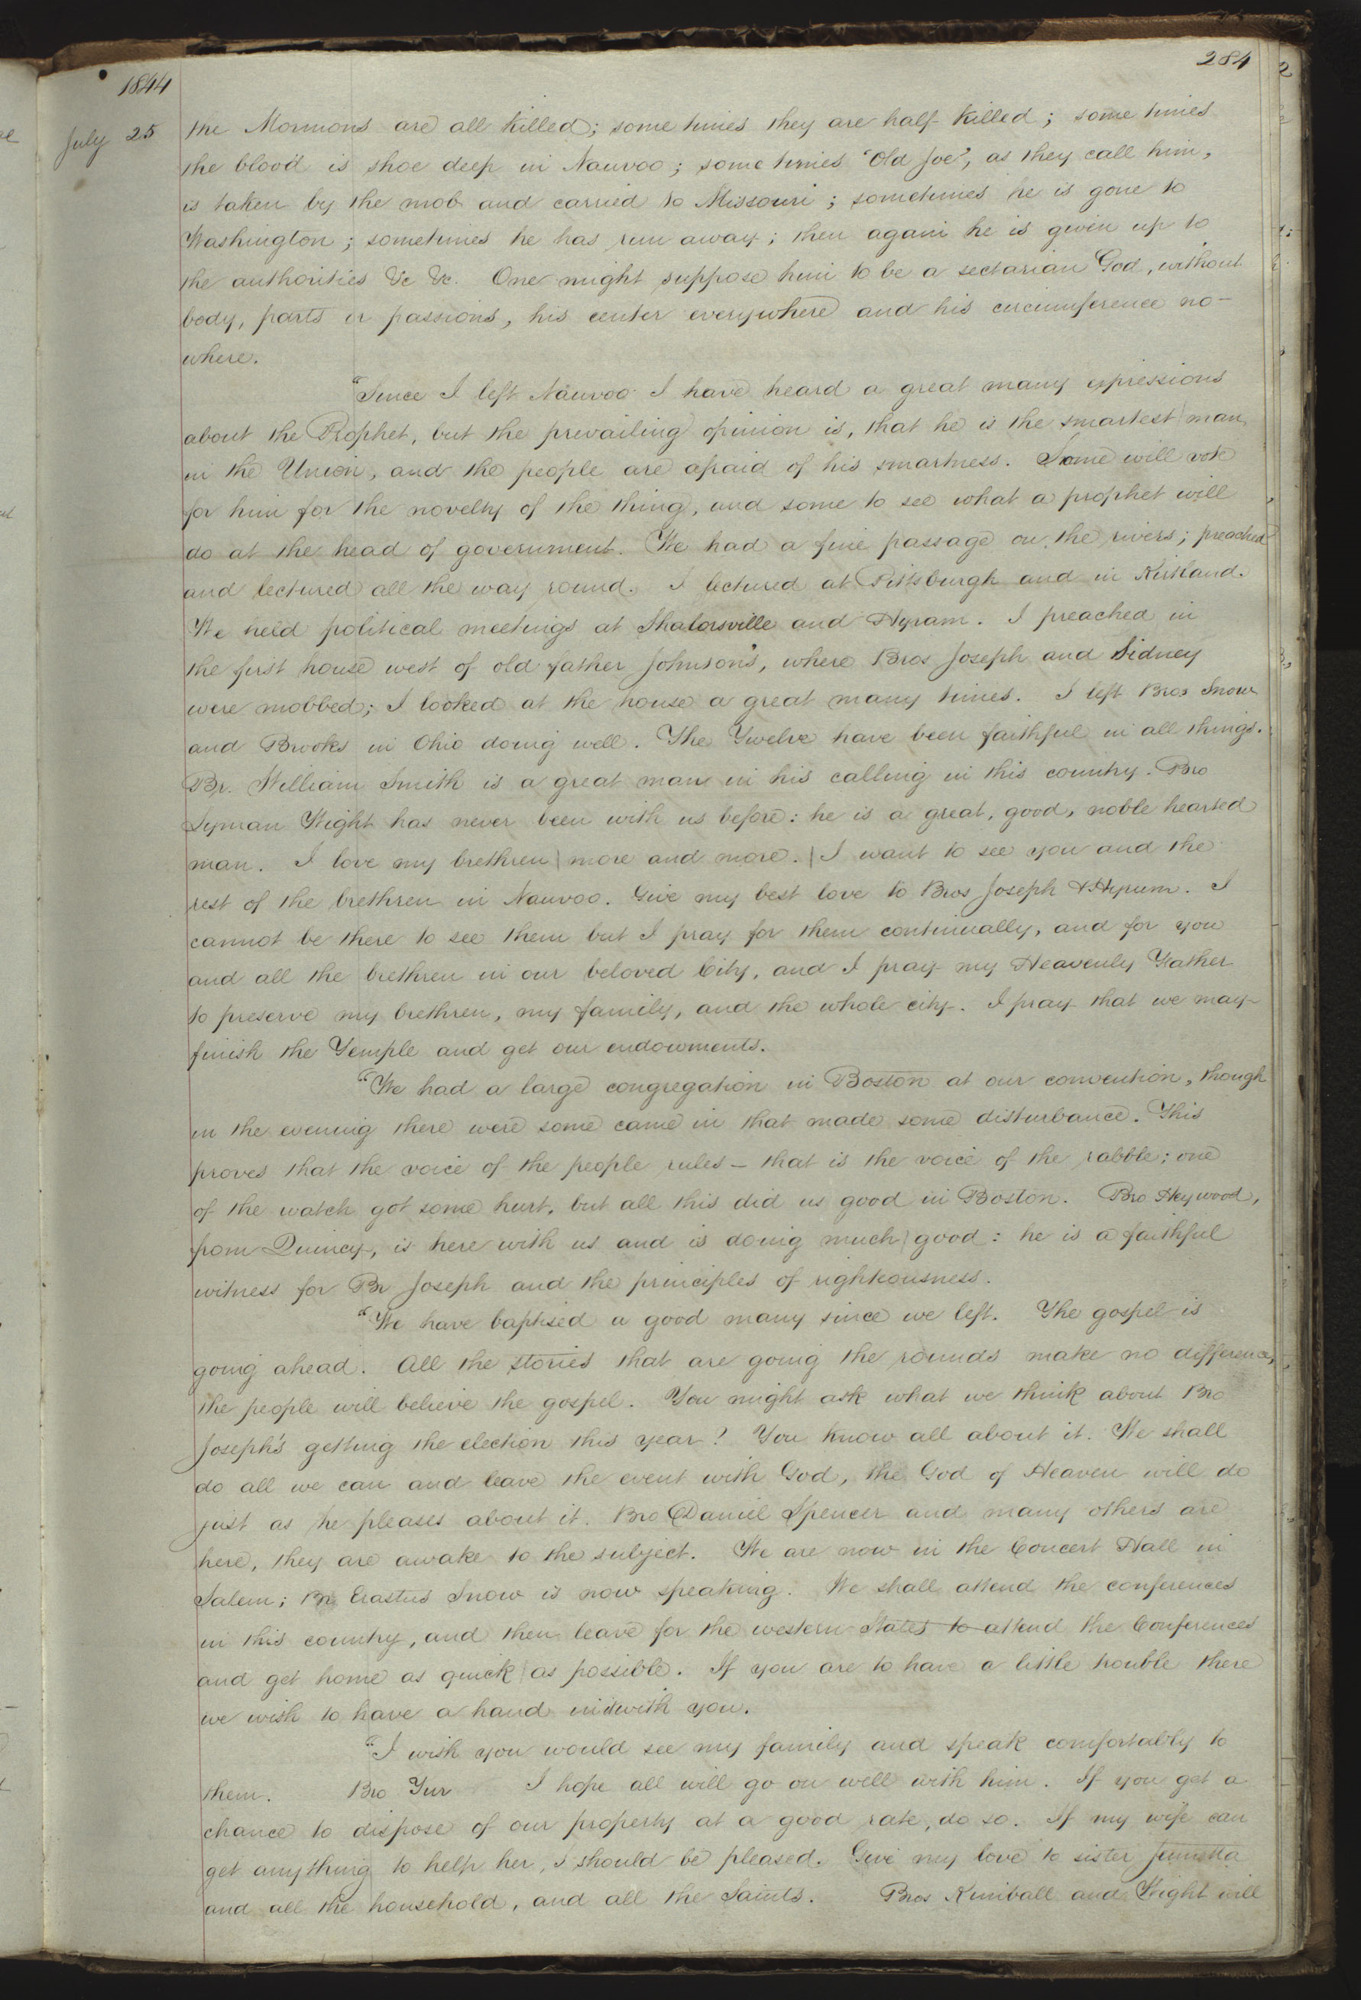 284
1844
July 25
the Mormons are all killed; some times they are half killed; some times
the blood is shoe deep in Nauvoo; some times "Old Joe", as they call him,
is taken by the mob and carried to Missouri; sometimes he is gone to
Washington; sometimes he has run away; then again he is given up to
the authorities &c &c. One might suppose him to be a sectarian God, without
body, parts or passions, his center everywhere and his circumference no-
where.
"Since I left Nauvoo I have heard a great many expressions
about the Prophet, but the prevailing opinion is, that he is the smartest man
in the Union, and the people are afraid of his smartness. Some will vote
for him for the novelty of the thing, and some to see what a prophet will
do at the head of government. We had a fine passage on the rivers; preached
and lectured all the way round. I lectured at Pittsburgh and in Kirtland.
We held political meetings at Shalorsville and Hyram. I preached in
the first house west of old father Johnson's, where Bros Joseph and Sidney
were mobbed; I looked at the house a great many times. I left Bros Snow
and Brooks in Ohio doing well. The Twelve have been faithful in all things.
Br. William Smith is a great man in his calling in this country. Bro
Lyman Wight has never been with us before: he is a great, good, noble hearted
man. I love my brethren more and more. I want to see you and the
rest of the brethren in Nauvoo. Give my best love to Bros Joseph & Hyrum. I
cannot be there to see them but I pray for them continually, and for you
and all the brethren in our beloved City, and I pray my Heavenly Father
to preserve my brethren, my family, and the whole city. I pray that we may
finish the Temple and get our endowments.
"We had a large congregation in Boston at our convention, though
in the evening there were some came in that made some disturbance. This
proves that the voice of the people rules – that is the voice of the rabble; one
of the watch got some hurt, but all this did us good in Boston. Bro Heywood,
from Quincy, is here with us and is doing much good: he is a faithful
witness for Br Joseph and the principles of righteousness.
"We have baptised a good many since we left. The gospel is
going ahead. All the stories that are going the rounds make no difference,
the people will believe the gospel. You might ask what we think about Bro
Joseph's getting the election this year? You know all about it. We shall
do all we can and leave the event with God, the God of Heaven will do
just as he pleases about it. Bro Daniel Spencer and many others are
here, they are awake to the subject. We are now in the Concert Hall in
Salem; Br. Erastus Snow is now speaking. We shall attend the conferences
in this country, and then leave for the western States to attend the Conferences
and get home as quick as possible. If you are to have a little trouble there
we wish to have a hand in it with you.
"I wish you would see my family and speak comfortably to
them. Bro I hope all will go on well with him. If you get a
chance to dispose of our property at a good rate, do so. If my wife can
get anything to help her, I should be pleased. Give my love to sister Jennetta
and all the household, and all the Saints. Bros Kimball and Wight will